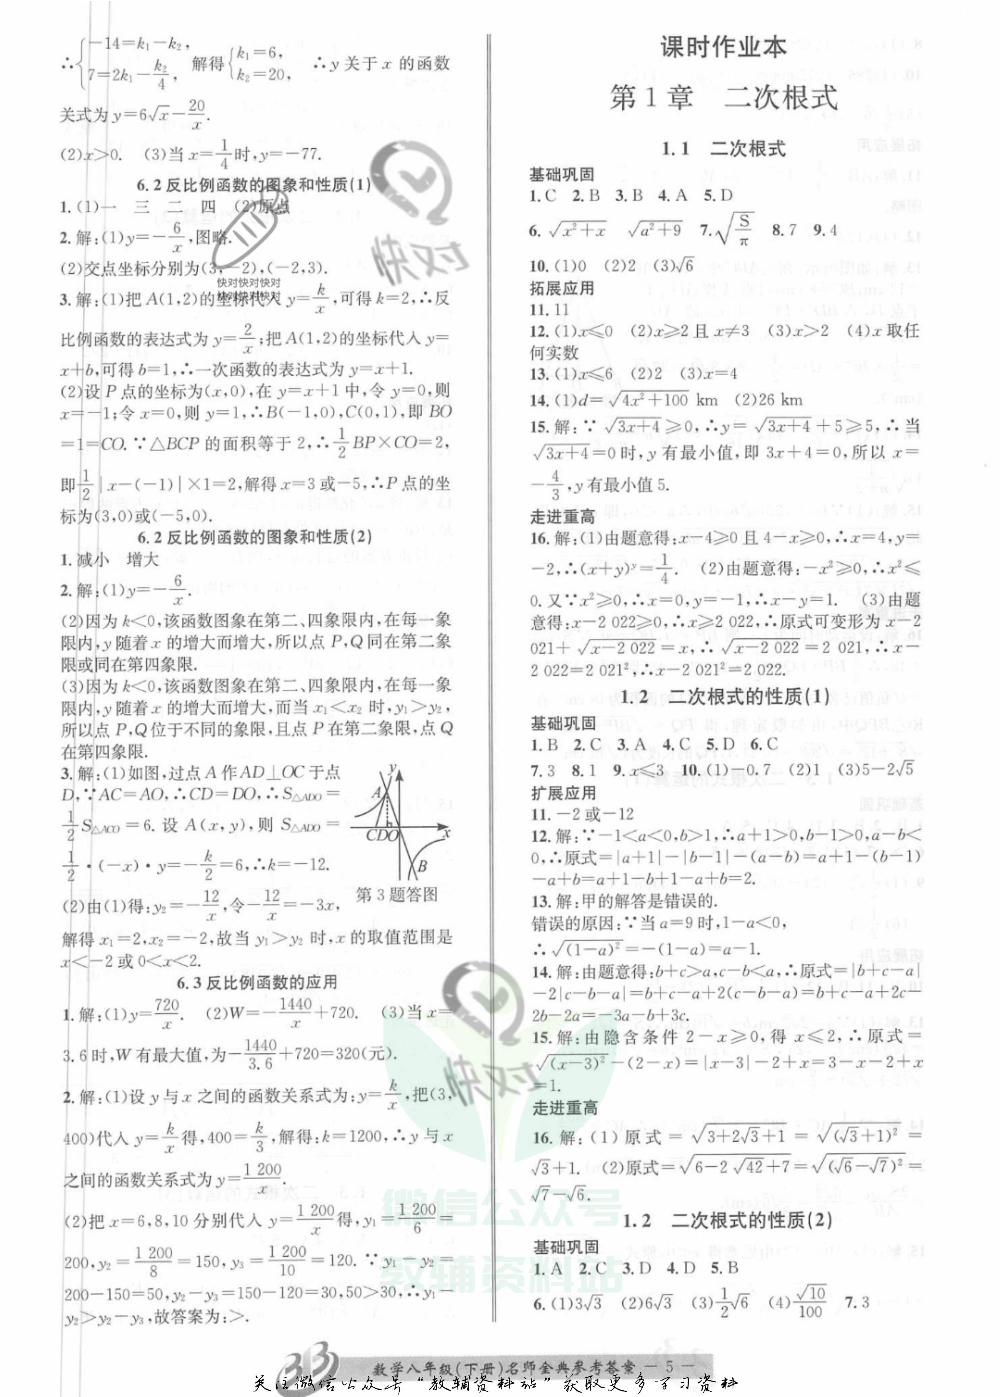 ∴{−14=k₁−k₂, 7=2k₁−k₂/4, 解得{k₁=6, k₂=20, ∴y关于x的函数
关式为y=6√x−20/x.
(2)x>0. (3)当x=1/4时,y=−77.
6.2反比例函数的图象和性质(1)
1.(1)一 三 二 四 (2)原点
2.解:(1)y=−6/x,图略.
(2)交点坐标分别为(3,−2),(−2,3).
3.解:(1)把A(1,2)的坐标代入y=k/x,可得k=2,∴反
比例函数的表达式为y=2/x;把A(1,2)的坐标代入y=
x+b,可得b=1,∴一次函数的表达式为y=x+1.
(2)设P点的坐标为(x,0),在y=x+1中,令y=0,则
x=−1;令x=0,则y=1,∴B(−1,0),C(0,1),即BO
=1=CO.∵△BCP的面积等于2,∴1/2BP×CO=2,
即1/2|x−(−1)|×1=2,解得x=3或−5,∴P点的坐
标为(3,0)或(−5,0).
6.2反比例函数的图象和性质(2)
1.减小 增大
2.解:(1)y=−6/x.
(2)因为k<0,该函数图象在第二、四象限内,在每一象
限内,y随着x的增大而增大,所以点P,Q同在第二象
限或同在第四象限.
(3)因为k<0,该函数图象在第二、四象限内,在每一象
限内,y随着x的增大而增大,而当x₁<x₂时,y₁>y₂,
所以点P,Q位于不同的象限,且点P在第二象限,点Q
在第四象限.
3.解:(1)如图,过点A作AD⊥OC于点
D,∵AC=AO,∴CD=DO,∴S△ADO=
1/2S△ACO=6.设A(x,y),则S△ADO=
1/2·(−x)·y=−k/2=6,∴k=−12.
y
A
CDO
x
B
第3题答图
(2)由(1)得:y₂=−12/x,令−12/x=−3x,
解得x₁=2,x₂=−2,故当y₁>y₂时,x的取值范围是
x<−2或0<x<2.
6.3反比例函数的应用
1.解:(1)y=720/x. (2)W=−1440/x+720. (3)当x=
3.6时,W有最大值,为−1440/3.6+720=320(元).
2.解:(1)设y与x之间的函数关系式为:y=k/x,把(3,
400)代入y=k/x得,400=k/3,解得:k=1200,∴y与x
之间的函数关系式为y=1 200/x.
(2)把x=6,8,10分别代入y=1 200/x得,y₁=1 200/6=
200,y₂=1 200/8=150,y₃=1 200/10=120.∵y₁−y₂=
200−150=50,y₂−y₃=150−120=30,50>30,∴y₁−
y₂>y₂−y₃,故答案为:>.
课时作业本
第1章 二次根式
1.1 二次根式
基础巩固
1.C 2.B 3.B 4.A 5.D
6.√(x²+x) √(a²+9) 7.√(S/π) 8.7 9.4
10.(1)0 (2)2 (3)√6
拓展应用
11.11
12.(1)x≤0 (2)x≥2且x≠3 (3)x>2 (4)x取任
何实数
13.(1)x≤6 (2)2 (3)x=4
14.(1)d=√(4x²+100) km (2)26 km
15.解:∵√(3x+4)≥0,∴y=√(3x+4)+5≥5,∴当
√(3x+4)=0时,y有最小值,即3x+4=0,所以x=
−4/3,y有最小值5.
走进重高
16.解:(1)由题意得:x−4≥0且4−x≥0,∴x=4,y=
−2,∴(x+y)ʸ=1/4. (2)由题意得:−x²≥0,∴x²≤
0.又∵x²≥0,∴x=0,y=−1,∴x−y=1. (3)由题
意得:x−2 022≥0,∴x≥2 022,∴原式可变形为x−2
021+√(x−2 022)=x,∴√(x−2 022)=2 021,∴x−
2 022=2 021²,∴x−2 021²=2 022.
1.2 二次根式的性质(1)
基础巩固
1.B 2.C 3.A 4.C 5.D 6.C
7.3 8.1 9.x≤3 10.(1)−0.7 (2)1 (3)5−2√5
扩展应用
11.−2或−12
12.解:∵−1<a<0,b>1,∴a+1>0,b−1>0,a−b<
0,∴原式=|a+1|−|b−1|−(a−b)=a+1−(b−1)
−a+b=a+1−b+1−a+b=2.
13.解:甲的解答是错误的.
错误的原因:∵当a=9时,1−a<0,
∴√((1−a)²)=−(1−a)=a−1.
14.解:由题意得:b+c>a,c−b<a,∴原式=|b+c−a|
−2|c−b−a|=b+c−a+2(c−b−a)=b+c−a+2c−
2b−2a=−3a−b+3c.
15.解:由隐含条件2−x≥0,得x≤2,∴原式=
√((x−3)²)−(2−x)=|x−3|−2+x=3−x−2+x
=1.
走进重高
16.解:(1)原式=√(3+2√3+1)=√((√3+1)²)=
√3+1. (2)原式=√(6−2√42+7)=√((√6−√7)²)=
√7−√6.
1.2 二次根式的性质(2)
基础巩固
1.A 2.C 3.D 4.D 5.B
6.(1)3√3 (2)6√3 (3)1/2√6 (4)√10/100 7.3
数学八年级(下册)名师金典参考答案 — 5 —
关注微信公众号"教辅资料站"获取更多学习资料
微信公众号
教辅资料站
快对快对快对
快对快对快对
快对
快对